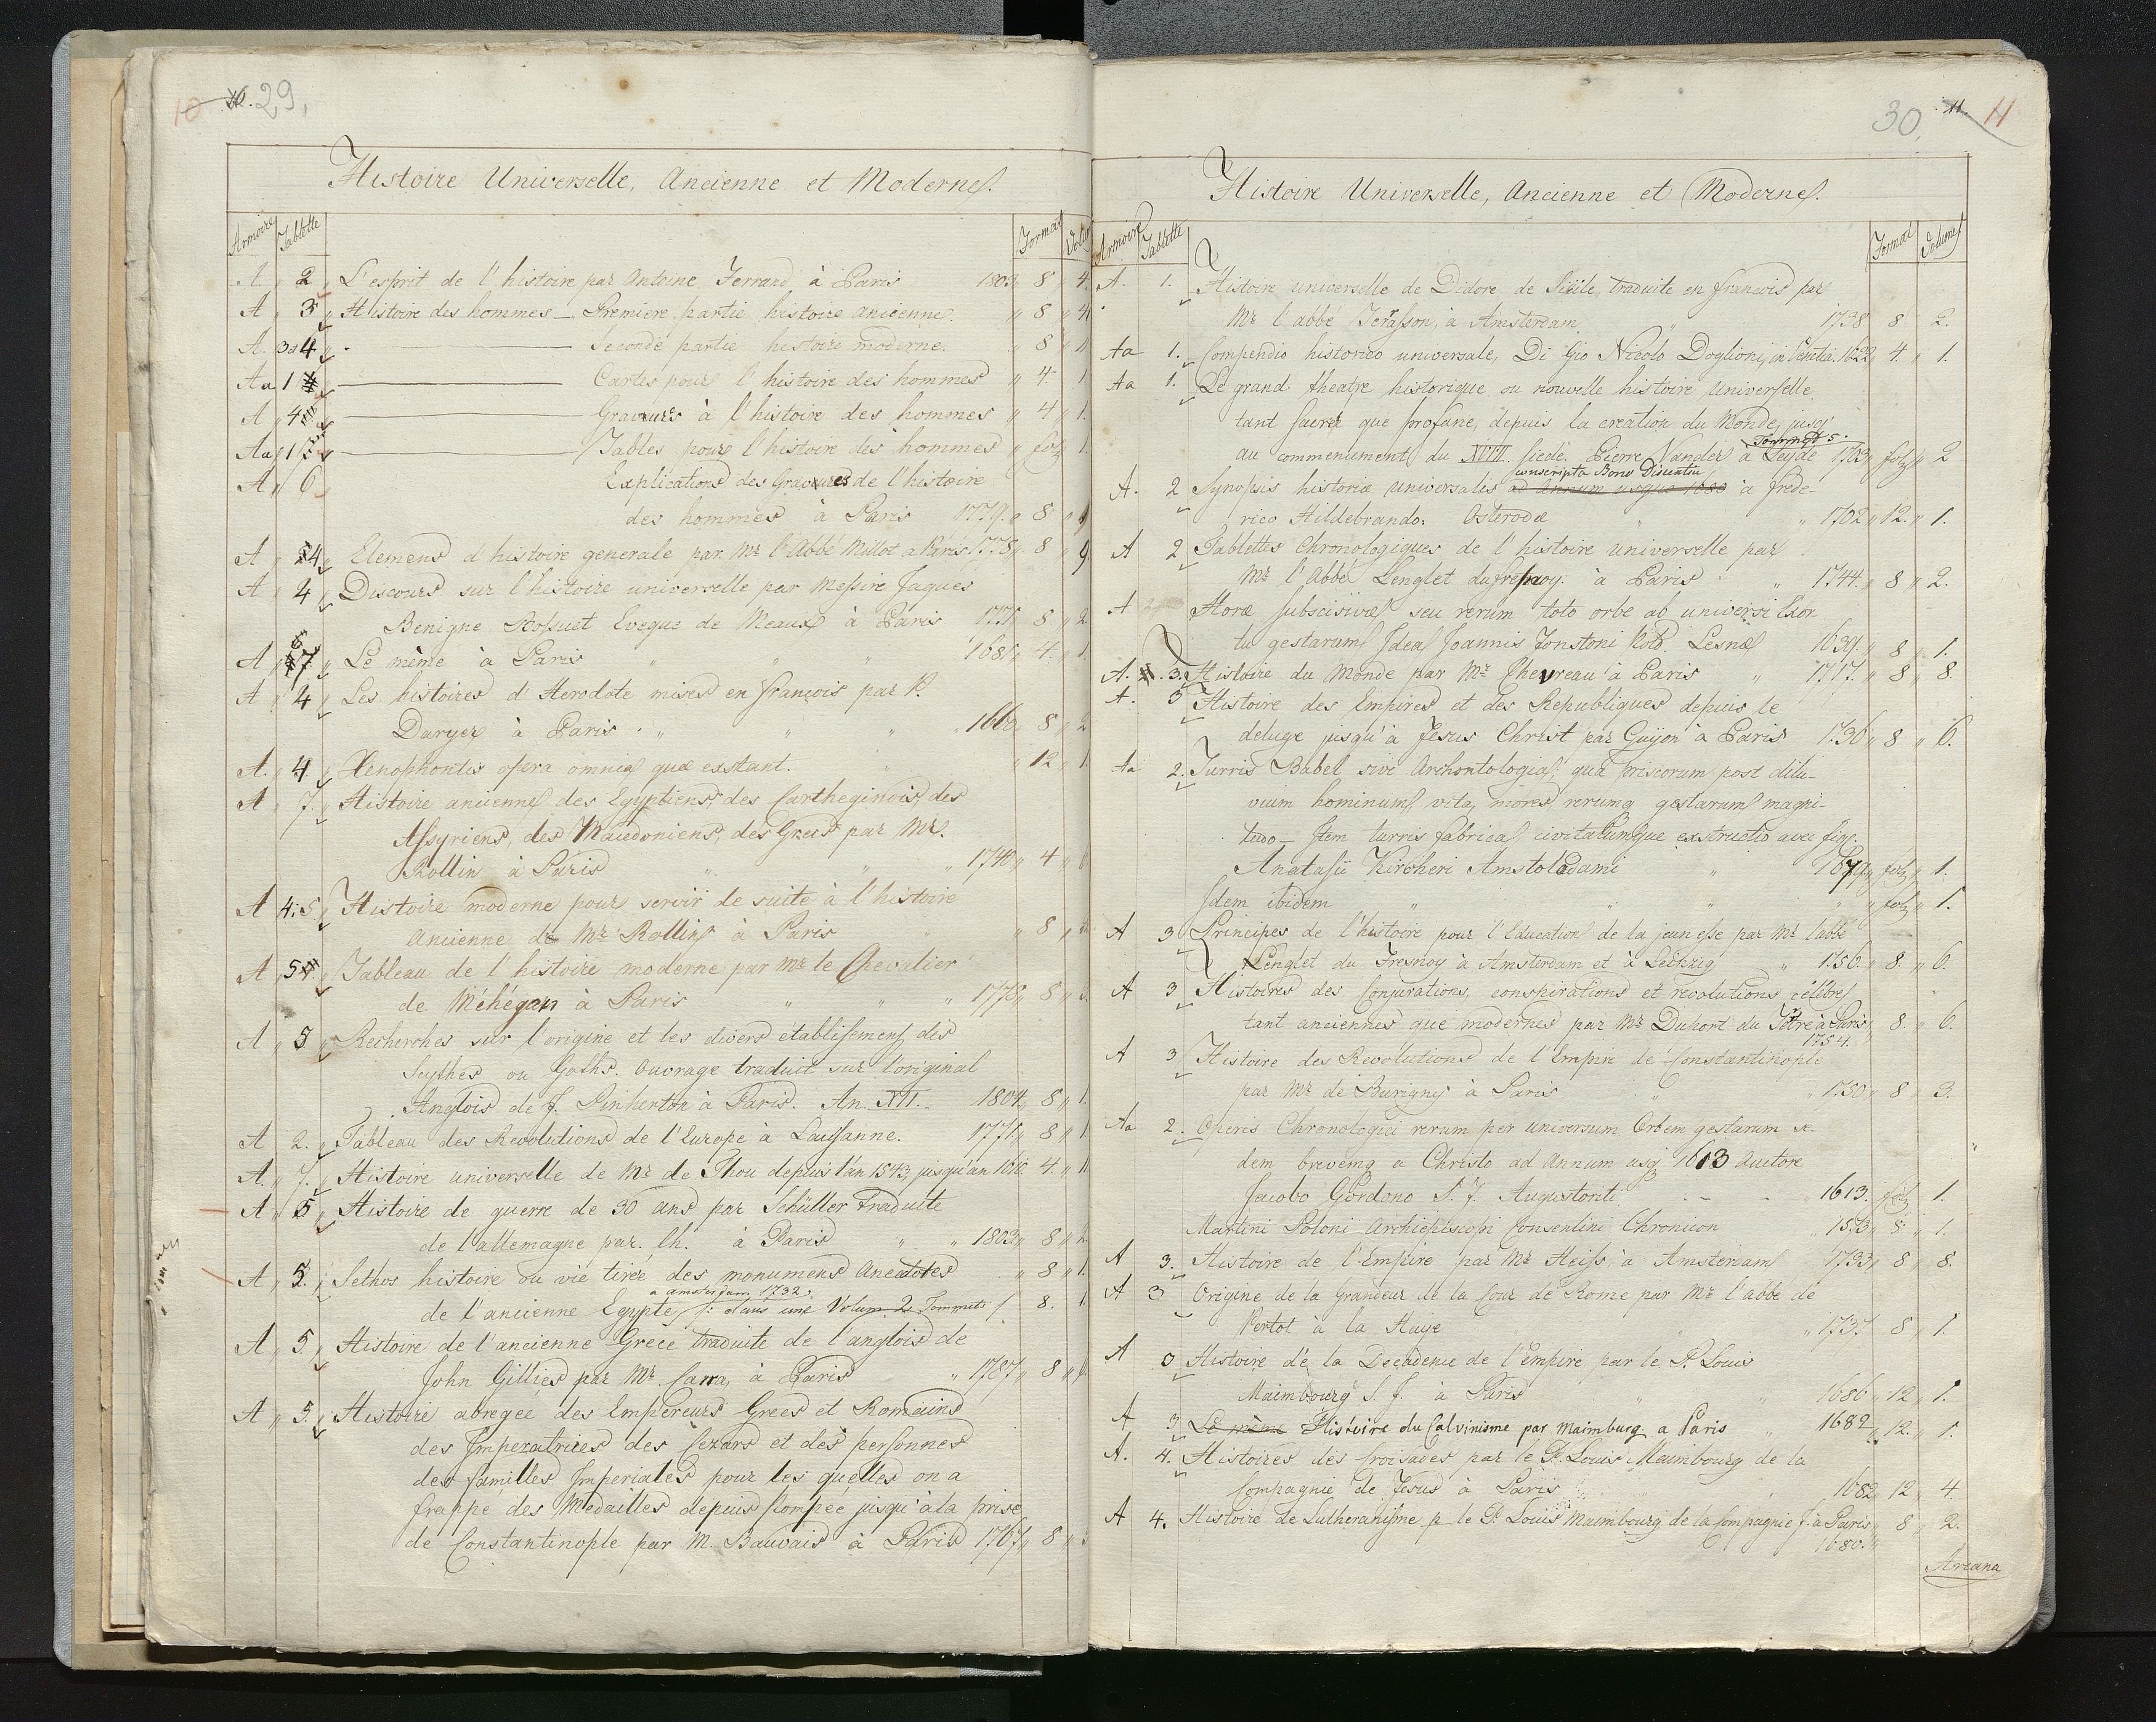 10 10. 29.
Histoire Universelle, Ancienne et Moderne.
Armoire Tablette Format Volu
A " 2 " L'esprit de l'histoire par Antoine Ferrand à Paris 1803 " 8 " 4.
A " 3 " Histoire des hommes — Premiere partie histoire ancienne. " 8 "
A. 3 4 " — Seconde partie histoire moderne. " 8 "
Aa 1 — Cartes pour l'histoire des hommes " 4. 1.
A " 4 — Gravures à l'histoire des hommes " 4 " 1.
Aa 1 — Tables pour l'histoire des hommes " fol " 1.
A " 6 Explications des Gravures de l'histoire
des hommes à Paris 1779. " 8 "
A " 4 " Elemens d'histoire generale par Mr l'Abbé Millot a Paris. 1778 " 8 " 9
A " 4 " Discours sur l'histoire universelle par Messire Jaques
Benigne Bossuet Eveque de Meaux à Paris 1771 8 " 2
A " 7. " Le même à Paris " " " 1681 " 4. " 1.
A " 4 " Les histoires d'Herodote mises en françois par P.
Duryer à Paris " " " 8 " 2
A. " 4. " Xenophontis opera omnia quæ exstant. " " 12 " 1
A " 7. " Histoire ancienne des Egyptiens, des Carthaginois, des
Assyriens, des Macedoniens, des Grecs par Mr.
Rollin à Paris " " " 1740 " 4 " 6
A 4: 5. " Histoire moderne pour servir de suite à l'histoire
Ancienne de Mr Rollin à Paris " " 8 "
A " 5 " Tableau de l'histoire moderne par Mr le Chevalier
de Méhégan à Paris " " " 1778 " 8 " 3.
A " 5 " Recherches sur l'origine et les divers etablissemens des
Scythes ou Goths. Ouvrage traduit sur l'original
Anglois de J. Pinkerton à Paris. An. XII. 1804. " 8 " 1.
A 2. " Tableau des Revolutions de l'Europe à Lausanne. 1771. " 8 " 1
A. " 7. " Histoire universelle de Mr de Thou depuis l'an 1543, jusqu'an 1610 4. " 11.
A " 5 " Histoire de guerre de 30 ans par Schüller traduite
de l'allemagne par. Ch. à Paris " " 1803 " 8 " 2
A " 5. " Sethos histoire ou vie tirée des monumens Anecdotes " 8 " 1.
a amsterdam 1732.
de l'ancienne Egypte /: dans une Volum 2 Tommes :/ 8. 1.
A " 5. " Histoire de l'ancienne Grece traduite de l'anglois de
John Gillies par Mr. Carra, à Paris " 1787 " 8 " 6.
A " 5. " Histoire abregée des Empereurs Grecs et Romains
des Imperatrices des Cezars et des personnes
des familles Imperiales pour les quelles on a
frappe des Medailles depuis Pompée jusqu'à la prise
de Constantinople par M. Bauvais à Paris 1767 " 8 " 3
30. 11. 11
Histoire Universelle, Ancienne et Moderne.
Armoire Tablette Format Volumes
A. 1. Histoire universelle de Didore de Sicile, traduite en francois par
Mr l'abbé Terasson, à Amsterdam " 1738 8 " 2.
Aa 1. Compendio historico universale, Di Gio Nicolo Doglioni, in Venetia. 1622, 4. " 1.
Aa 1. Le grand. theatre historique ou nouvelle histoire Universelle
tant sacrée que profane, depuis la creation du Monde, jusq'
Tommes 5.
au commencement du XVIII. siecle. Pierre Vander à Leyde 1703 " fol " 2
conscripta Bono Discentiu
A. 2 Synopsis historiæ universalis ad annum usque 1680 à frede-
rico Hildebrando. Osterodæ " " 1702 " 12. " 1.
A 2 Tablettes Chronologiques de l'histoire universelle par
Mr l'Abbé Lenglet dufresnoy. à Paris " 1744. " 8 " 2.
A Horæ subscisivæ seu rerum toto orbe ab universi Exor-
tu gestarum Idea Joannis Jonstoni Lesnæ 1639. " 8 " 1.
A. 3. Histoire du Monde par Mr Chevreau à Paris " 1717. " 8 " 8.
A. 3 Histoire des Empires et des Republiques depuis le
deluge jusqu'à Jesus Christ par Guyon à Paris 1736 " 8 " 6.
Aa 2. Turris Babel sive Archontologia, qua priscorum post dilu-
vium hominum vita, mores rerumq gestarum magni-
tudo — Item turris fabrica civitatumque exstructio avec figg.
Anatasii Kircheri Amstoledami " 1679 " fol " 1.
Idem ibidem " " " " fol " 1.
A 3 Principes de l'histoire pour l'Education de la jeunesse par Mr l'abbé
Lenglet du Fresnoy à Amsterdam et à Leipzig " 1756. " 8. " 6.
A 3 Histoires des Conjurations, conspirations et revolutions célébres
tant anciennes que modernes par Mr Duport du Tertre à Paris " 8. " 6.
1754.
A 3 Histoire des Revolutions de l'Empire de Constantinople
par Mr de Burigny à Paris " " 1750 " 8 " 3.
Aa 2. Operis Chronologici rerum per universum Orbem gestarum se-
dem brevemq a Christo ad Annum usq 1613 Auctore
Jacobo Gordono S. J. Augustoriti - - - " 1613. fol 1.
Martini Poloni Archiepiscopi Consentini Chronicon " 1573 " 8 " 1.
A 3. Histoire de l'Empire par Mr Heiss à Amsterdam 1733 " 8 " 8.
A 3 Origine de la Grandeur de la Cour de Rome par Mr l'abbe de
Vertot à la Haye " " 1737 8 " 1.
A 3 Histoire de la Decadence de l'Empire par le P. Louis
Maimbourg S. J. à Paris " 1686 " 12 " 1.
A 3 Le même Histoire du Calvinisme par Maimburg a Paris " 1682 " 12. " 1.
A. 4. Histoires des Croisades par le P. Louis Maimbourg de la
Compagnie de Jesus à Paris " 1682 " 12 " 4.
A 4. Histoire de Lutheranisme p. le P. Louis Maimbourg de la Compagnie J. à Paris " 8 " 2.
1680. "
Arcana